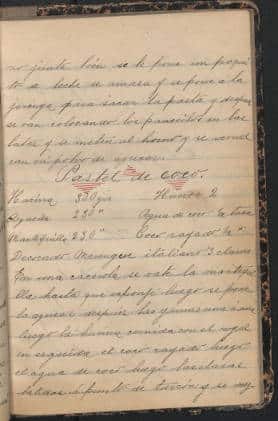 no junte bien se le pone un poqui
to de leche se amasa y se pone a la
jeringa para sacar la pasta y despues
se van colocando los panecitos en las
latas y se meten al horno y se cornal
con un polvo de azucar.
Pastel de coco.
Harina 320 grs Huevos 2
Azucar 230 " Agua de coco ½ taza
Mantequilla 230 " Coco rayado ½ "
Decorado Merengue italiano 3 claras
En una cacerola se bate la mantequi
lla hasta que esponje luego se pone
la azucar despues las yemas una a una
luego la harina cernida con el royal
en seguida el coco rayado luego
el agua de coco luego las claras
batidas á punto de turrón y se